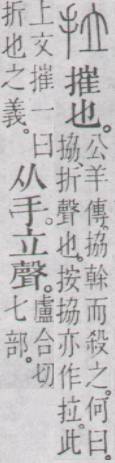 拉 摧也。公羊傳。拹榦而殺之。何曰。拹、折聲也。按拹亦作拉。此
上文摧一曰折也之義。从手。立聲。盧合切。七部。